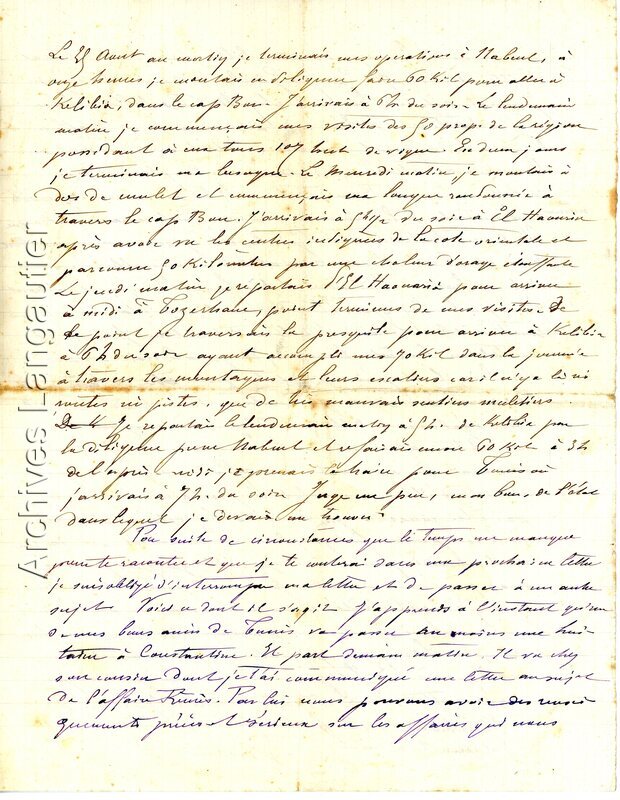 Le 25 Aout au matin je terminais mes operations à Nabeul, à
onze heures je montais en diligence faire 60 Kil pour aller à
Kelibia, dans le cap Bon. J'arrivais à 6h. du soir. Le lendemain
matin je commençais mes visites des 50 prop. de la région
possédant à eux tous 107 hect de vigne. En deux jours
je terminais ma besogne. Le Mercredi matin, je montais à
dos de mulet et commençais ma longue randonnée à
travers le cap Bon. J'arrivais à 5h1/2 du soir à El Haouria
après avoir vu les centres indigènes de la cote orientale et
parcouru 50 Kilometres par une chaleur d'orage étouffante
Le jeudi matin je repartais d'El Haouaria pour arriver
à midi à Tozerhane, point terminus de mes visites. De
ce point je traversais la presqu'ile pour arriver à Kelibia
à 7h du soir ayant accompli mes 70 Kil dans la journée
à travers les montagnes et leurs escaliers car il n'y a là ni
routes ni pistes, que de très mauvais sentiers muletiers.
Je repartais le lendemain matin à 5h. de Kelibia par
la diligence pour Nabeul et refaisais encore 60 Kil à 3h
de l'après midi, je prenais le train pour Tunis où
j'arrivais à 7h. du soir. Juge un peu, mon bon, de l'état
dans lequel je devais me trouver.
Par suite de circonstances que le temps me manque
pour te raconter et que je te conterai dans ma prochaine lettre
je suis obligé d'interrompre ma lettre et de passer à un autre
sujet. Voici ce dont il s'agit. J'apprends à l'instant qu'un
de mes bons amis de Tunis va passer au moins une hui-
taine à Constantine. Il part demain matin. Il va chez
son cousin dont je t'ai communiqué une lettre au sujet
de l'affaire. Par lui nous pouvons avoir des rensei
gnements précis et sérieux sur les affaires qui nous
Archives Langautier